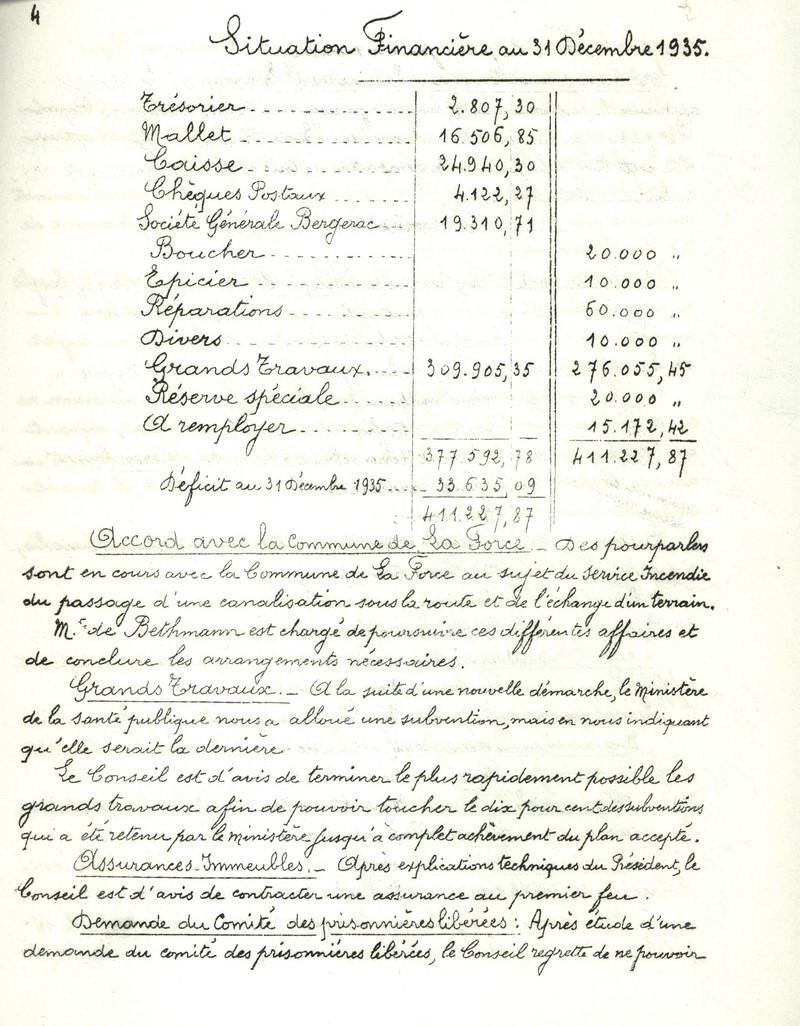 4
Situation Financière au 31 Décembre 1935.
Trésorier 2.807,30
Mallet 16.506,85
Caisse 24.940,30
Chèques Postaux 4.122,27
Société Générale Bergerac 19.310,71
Boucher 20.000 "
Epicier 10.000 "
Réparations 60.000 "
Divers 10.000 "
Grands Travaux. 309.905,35 276.055,45
Réserve spéciale 20.000 "
A remployer 15.172,42
377.592,78 411.227,87
Déficit au 31 Décembre 1935 33.635,09
411.227,87
Accord avec la Commune de La Force – Des pourparlers
sont en cours avec la Commune de La Force au sujet du Service Incendie
du passage d'une canalisation sous la route et de l'échange d'un terrain.
Mr. de Bethmann est chargé de poursuivre ces différentes affaires et
de conclure les arrangements nécessaires.
Grands Travaux. – A la suite d'une nouvelle démarche, le Ministère
de la santé publique nous a alloué une subvention, mais en nous indiquant
qu'elle serait la dernière
Le Conseil est d'avis de terminer le plus rapidement possible les
grands travaux afin de pouvoir toucher le dix pour cent des subventions
qui a été retenu par le Ministère jusqu'à complet achèvement du plan accepté.
Assurances Immeubles. – Après explications techniques du Président, le
Conseil est d'avis de contracter une assurance au premier feu.
Demande du Comité des prisonnières libérées : Après étude d'une
demande du comité des prisonnières libérées, le Conseil regrette de ne pouvoir